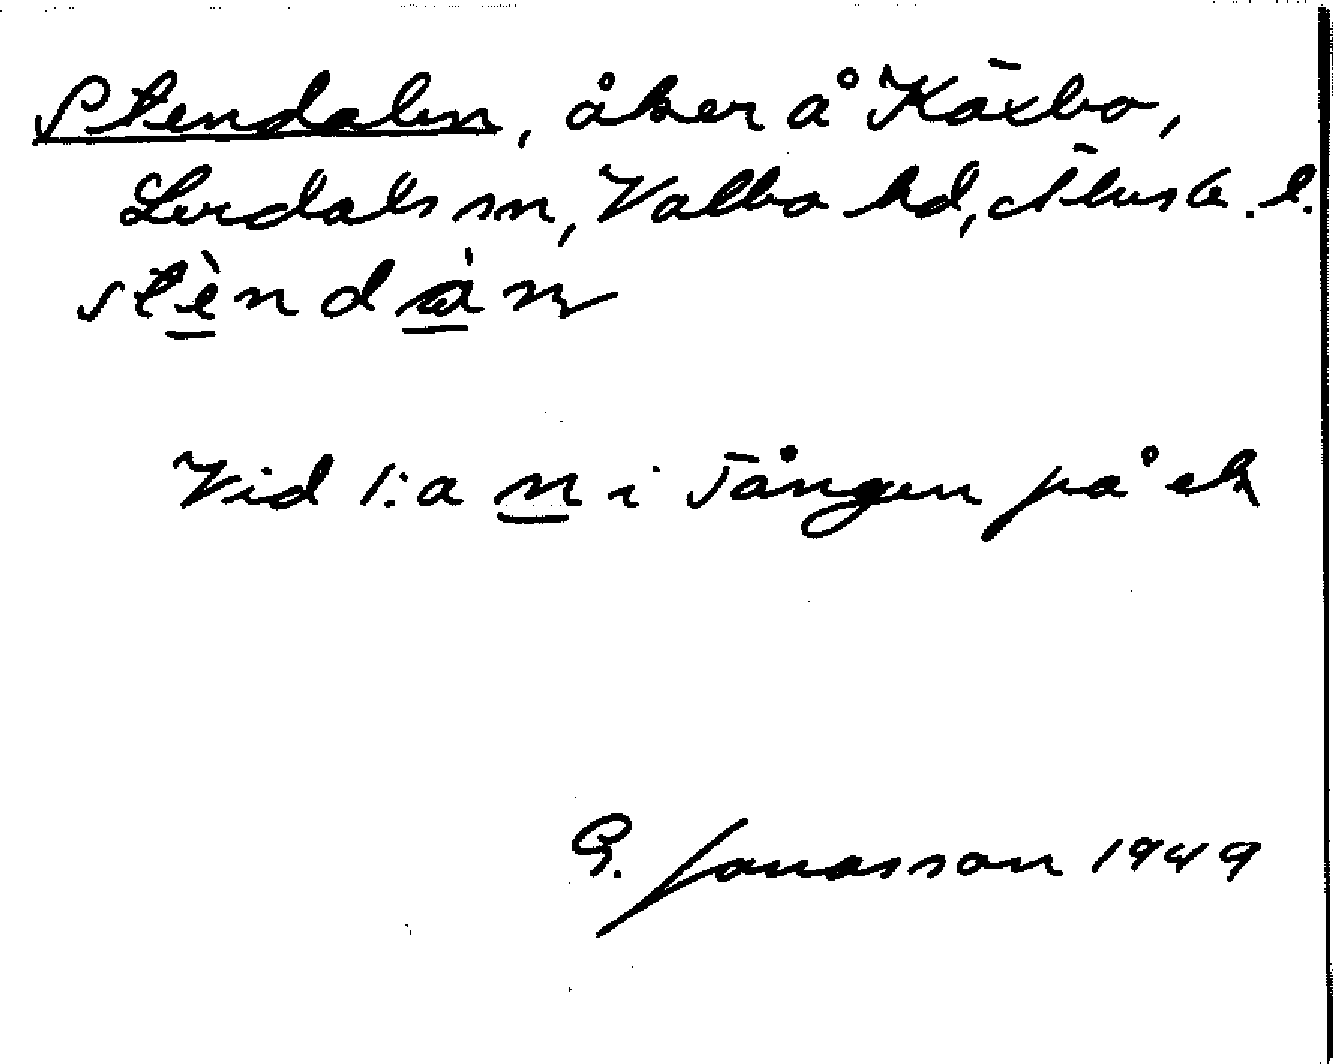 Stendalen, åker å Käxbo,
Lerdals sn, Valbo hd, Älvsb. l.
stèndàn
Vid 1:a n i Tången på ek
G. Jonasson 1949